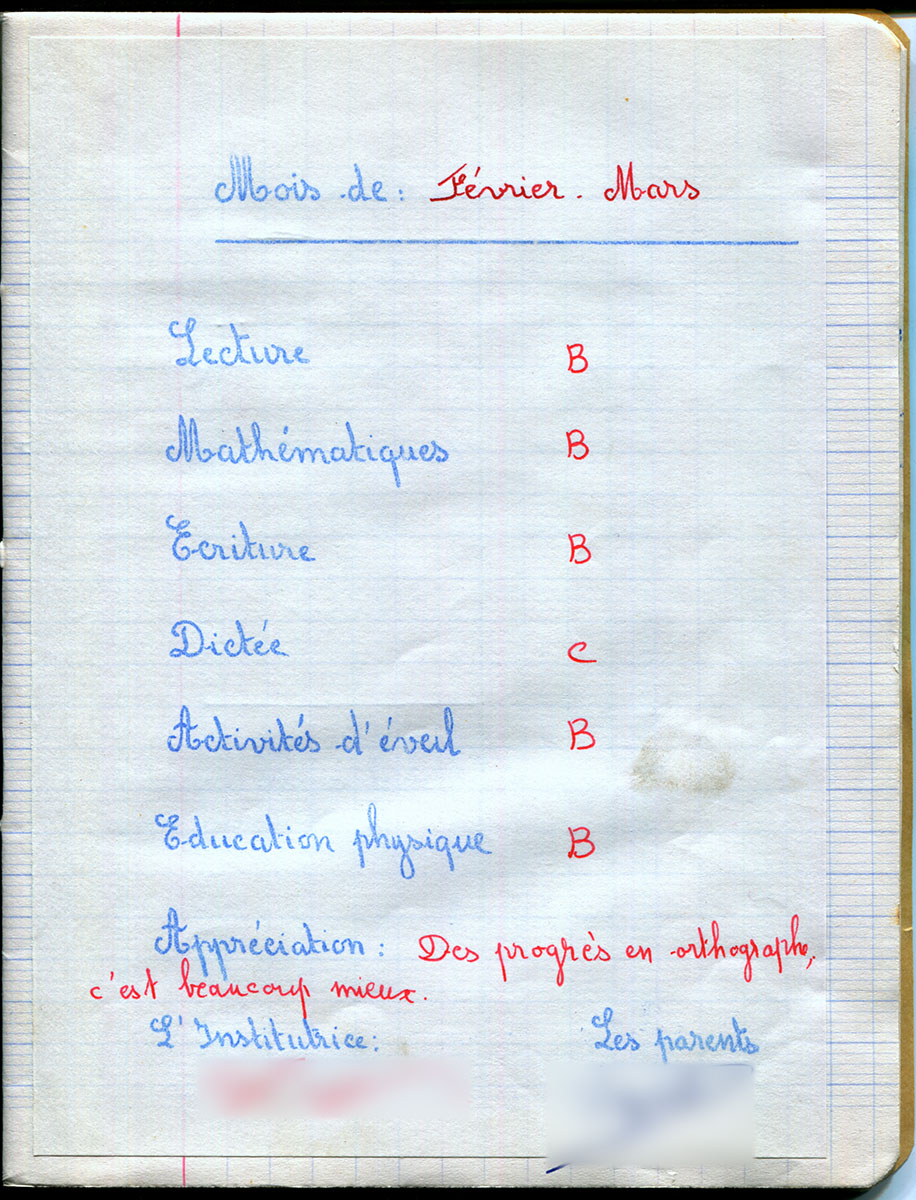 Mois de : Février - Mars
Lecture B
Mathématiques B
Ecriture B
Dictée C
Activités d'éveil B
Education physique B
Appréciation : Des progrès en orthographe,
c'est beaucoup mieux.
L'Institutrice : Les parents